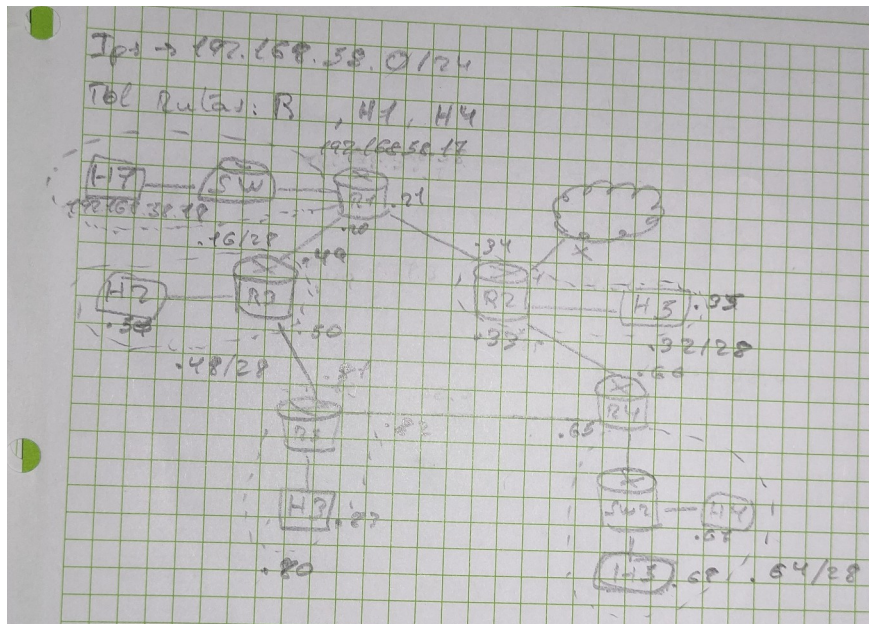 Ips → 192.168.58.0/24
Tbl Rutas: R , H1, H4
192.168.58.17
H1 SW R1 .21
192.168.58.18
.20
.16/28 .49 .34 X
H2 R3 R2 H3 .35
.50 .33
.32/28
.48/28 .66
.81
R5 R4
.82 .65
H3 .83 SW2 H4
.67
.80 H5 .68 .64/28